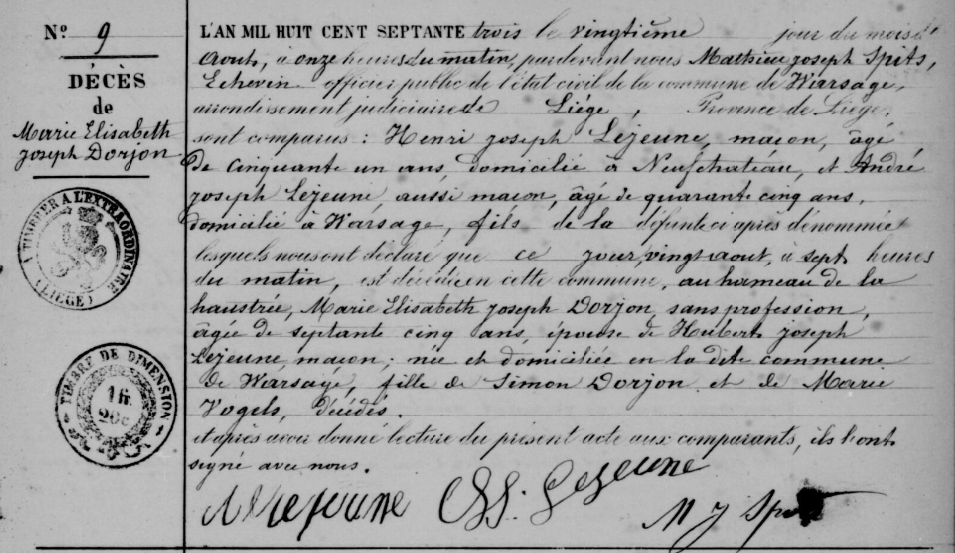 Nº 9
DÉCÈS
de
Marie Elisabeth
joseph Dorjon.
(TIMBRER A L'EXTRAORDINAIRE)
(LIÈGE)
TIMBRE DE DIMENSION
1 fr.
20c
L'AN MIL HUIT CENT SEPTANTE trois le vingtième jour du mois d'
Aout, à onze heures du matin, pardevant nous Mathieu joseph Spits,
Echevin officier public de l'état civil de la commune de Warsage,
arrondissement judiciaire de Liége, Province de Liége,
sont comparus : Henri joseph Lejeune, maçon, âgé
de cinquante un ans, domicilié à Neufchateau, et André
joseph Lejeune, aussi macon, âgé de quarante cinq ans,
domicilié à Warsage, fils de la défunte ci après dénommée
lesquels nous ont déclaré que ce jour, vingt aout, à sept heures
du matin, est décédée en cette commune, au hameau de la
haustrée, Marie Elisabeth joseph Dorjon, sans profession,
âgée de septante cinq ans, épouse de Hubert joseph
Lejeune, maçon ; née et domiciliée en la dite commune
de Warsage, fille de Simon Dorjon et de Marie
Vogels, décédés.
et après avoir donné lecture du présent acte aux comparants, ils l'ont
signé avec nous.
Lejeune Lejeune
M J Spits